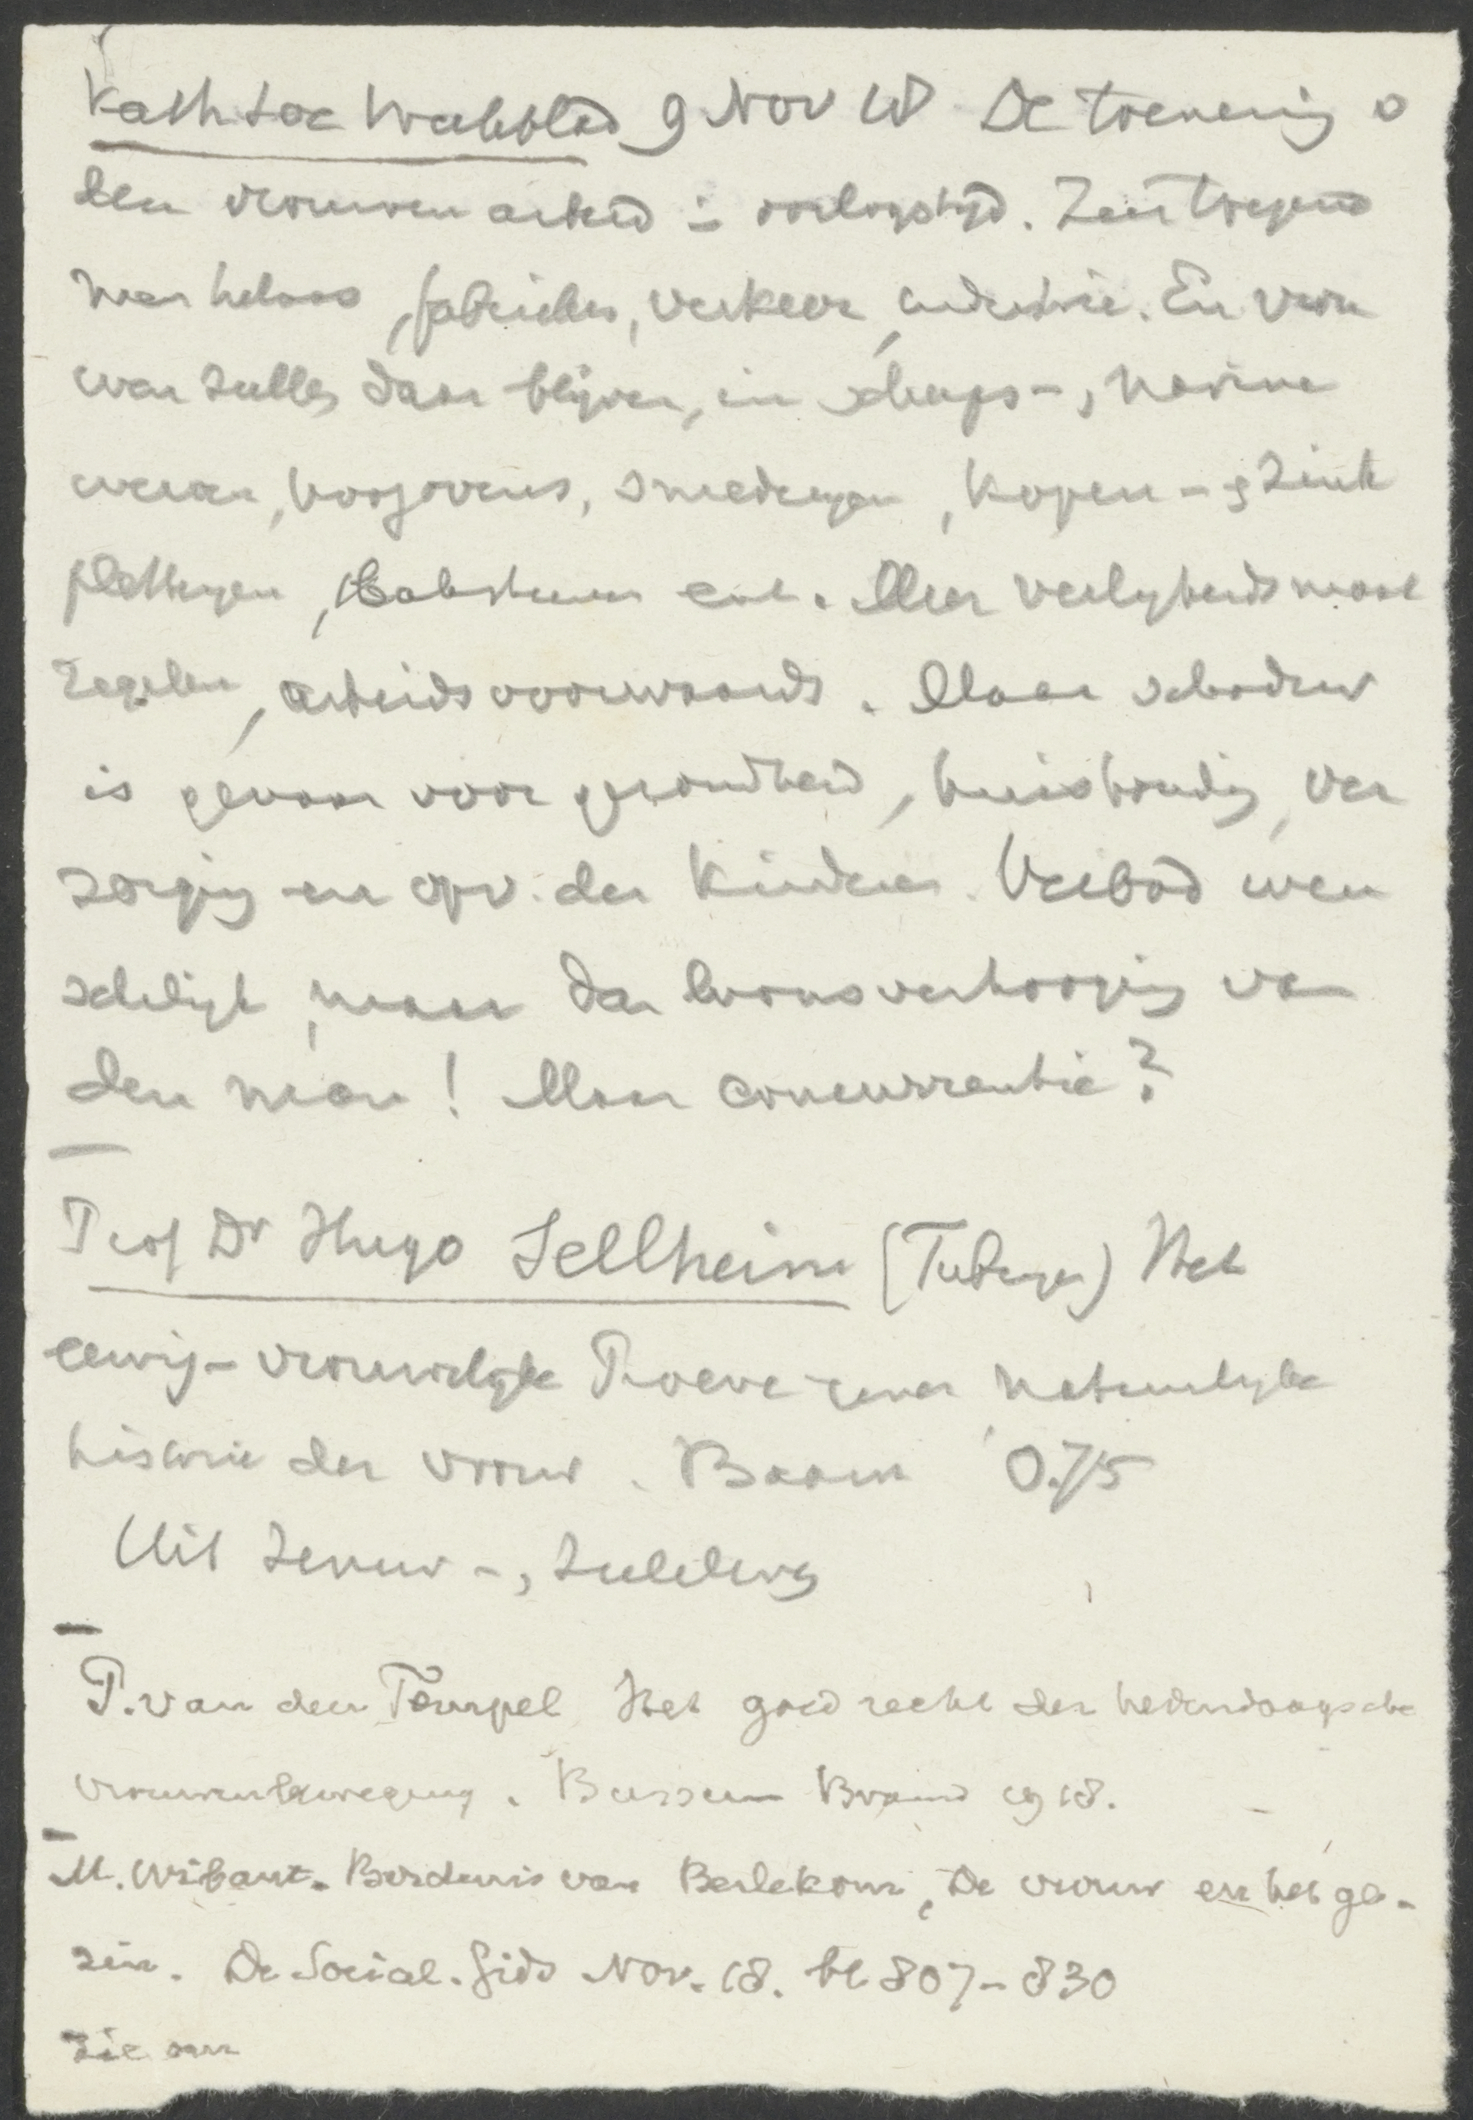 Kath Soc Weekblad 9 Nov 18 De toeneming v
den vrouwenarbeid in oorlogstijd. Zeer toegeno
men helaas, fabrieken, verkeer, industrie. En vrou
wen zullen daar blijven, in scheeps-, marine
werven, hoogovens, smederijen, koper- & zink
pletterijen, enz. Meer veiligheidsmaat
regelen, arbeidsvoorwaards. Maar schaduw
is gevaar voor gezondheid, huishouding, ver
zorging en opv. der kinderen. Verbod wen
schelijk, maar dan loonsverhooging van
den man! Maar concurrentie?
Prof Dr Hugo Sellheim (Tubingen) Het
eewig-vrouwelijke Proeve eener natuurlijke
historie der vrouw. Baarn 0.75
Uit Zenuw-, Zielelevn
P. van den Tempel Het goed recht der hedendaagsche
vrouwenbeweging. Bussum Brand 1918.
M. Wibaut-Berdenis van Berlekom, De vrouw en het ge-
zin. De Social. Gids Nov. 18. bl 807-830
Zie om